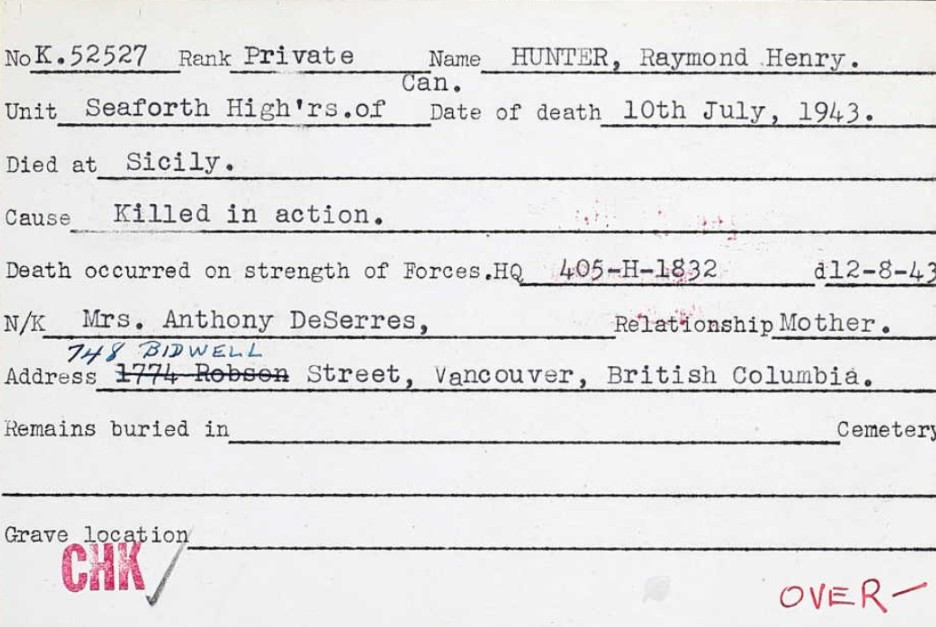 No K.52527 Rank Private Name HUNTER, Raymond Henry.
Can.
Unit Seaforth High'rs.of Date of death 10th July, 1943.
Died at Sicily.
Cause Killed in action.
Death occurred on strength of Forces.HQ 405-H-1832 d12-8-43
N/K Mrs. Anthony DeSerres, Relationship Mother.
748 BIDWELL
Address 1774 Robson Street, Vancouver, British Columbia.
Remains buried in Cemetery
Grave location
CHK
OVER-